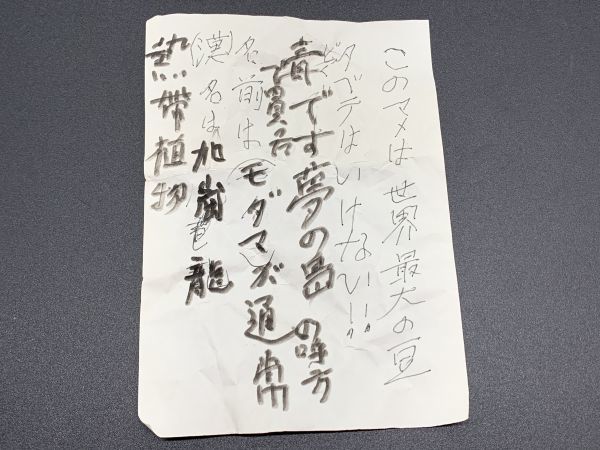 このマメは世界最大の豆
タベテはいけない!!
毒です夢の島
名前は(モダマ)ズ通常
の呼方
(漢)名は加嵐龍
熱帯植物